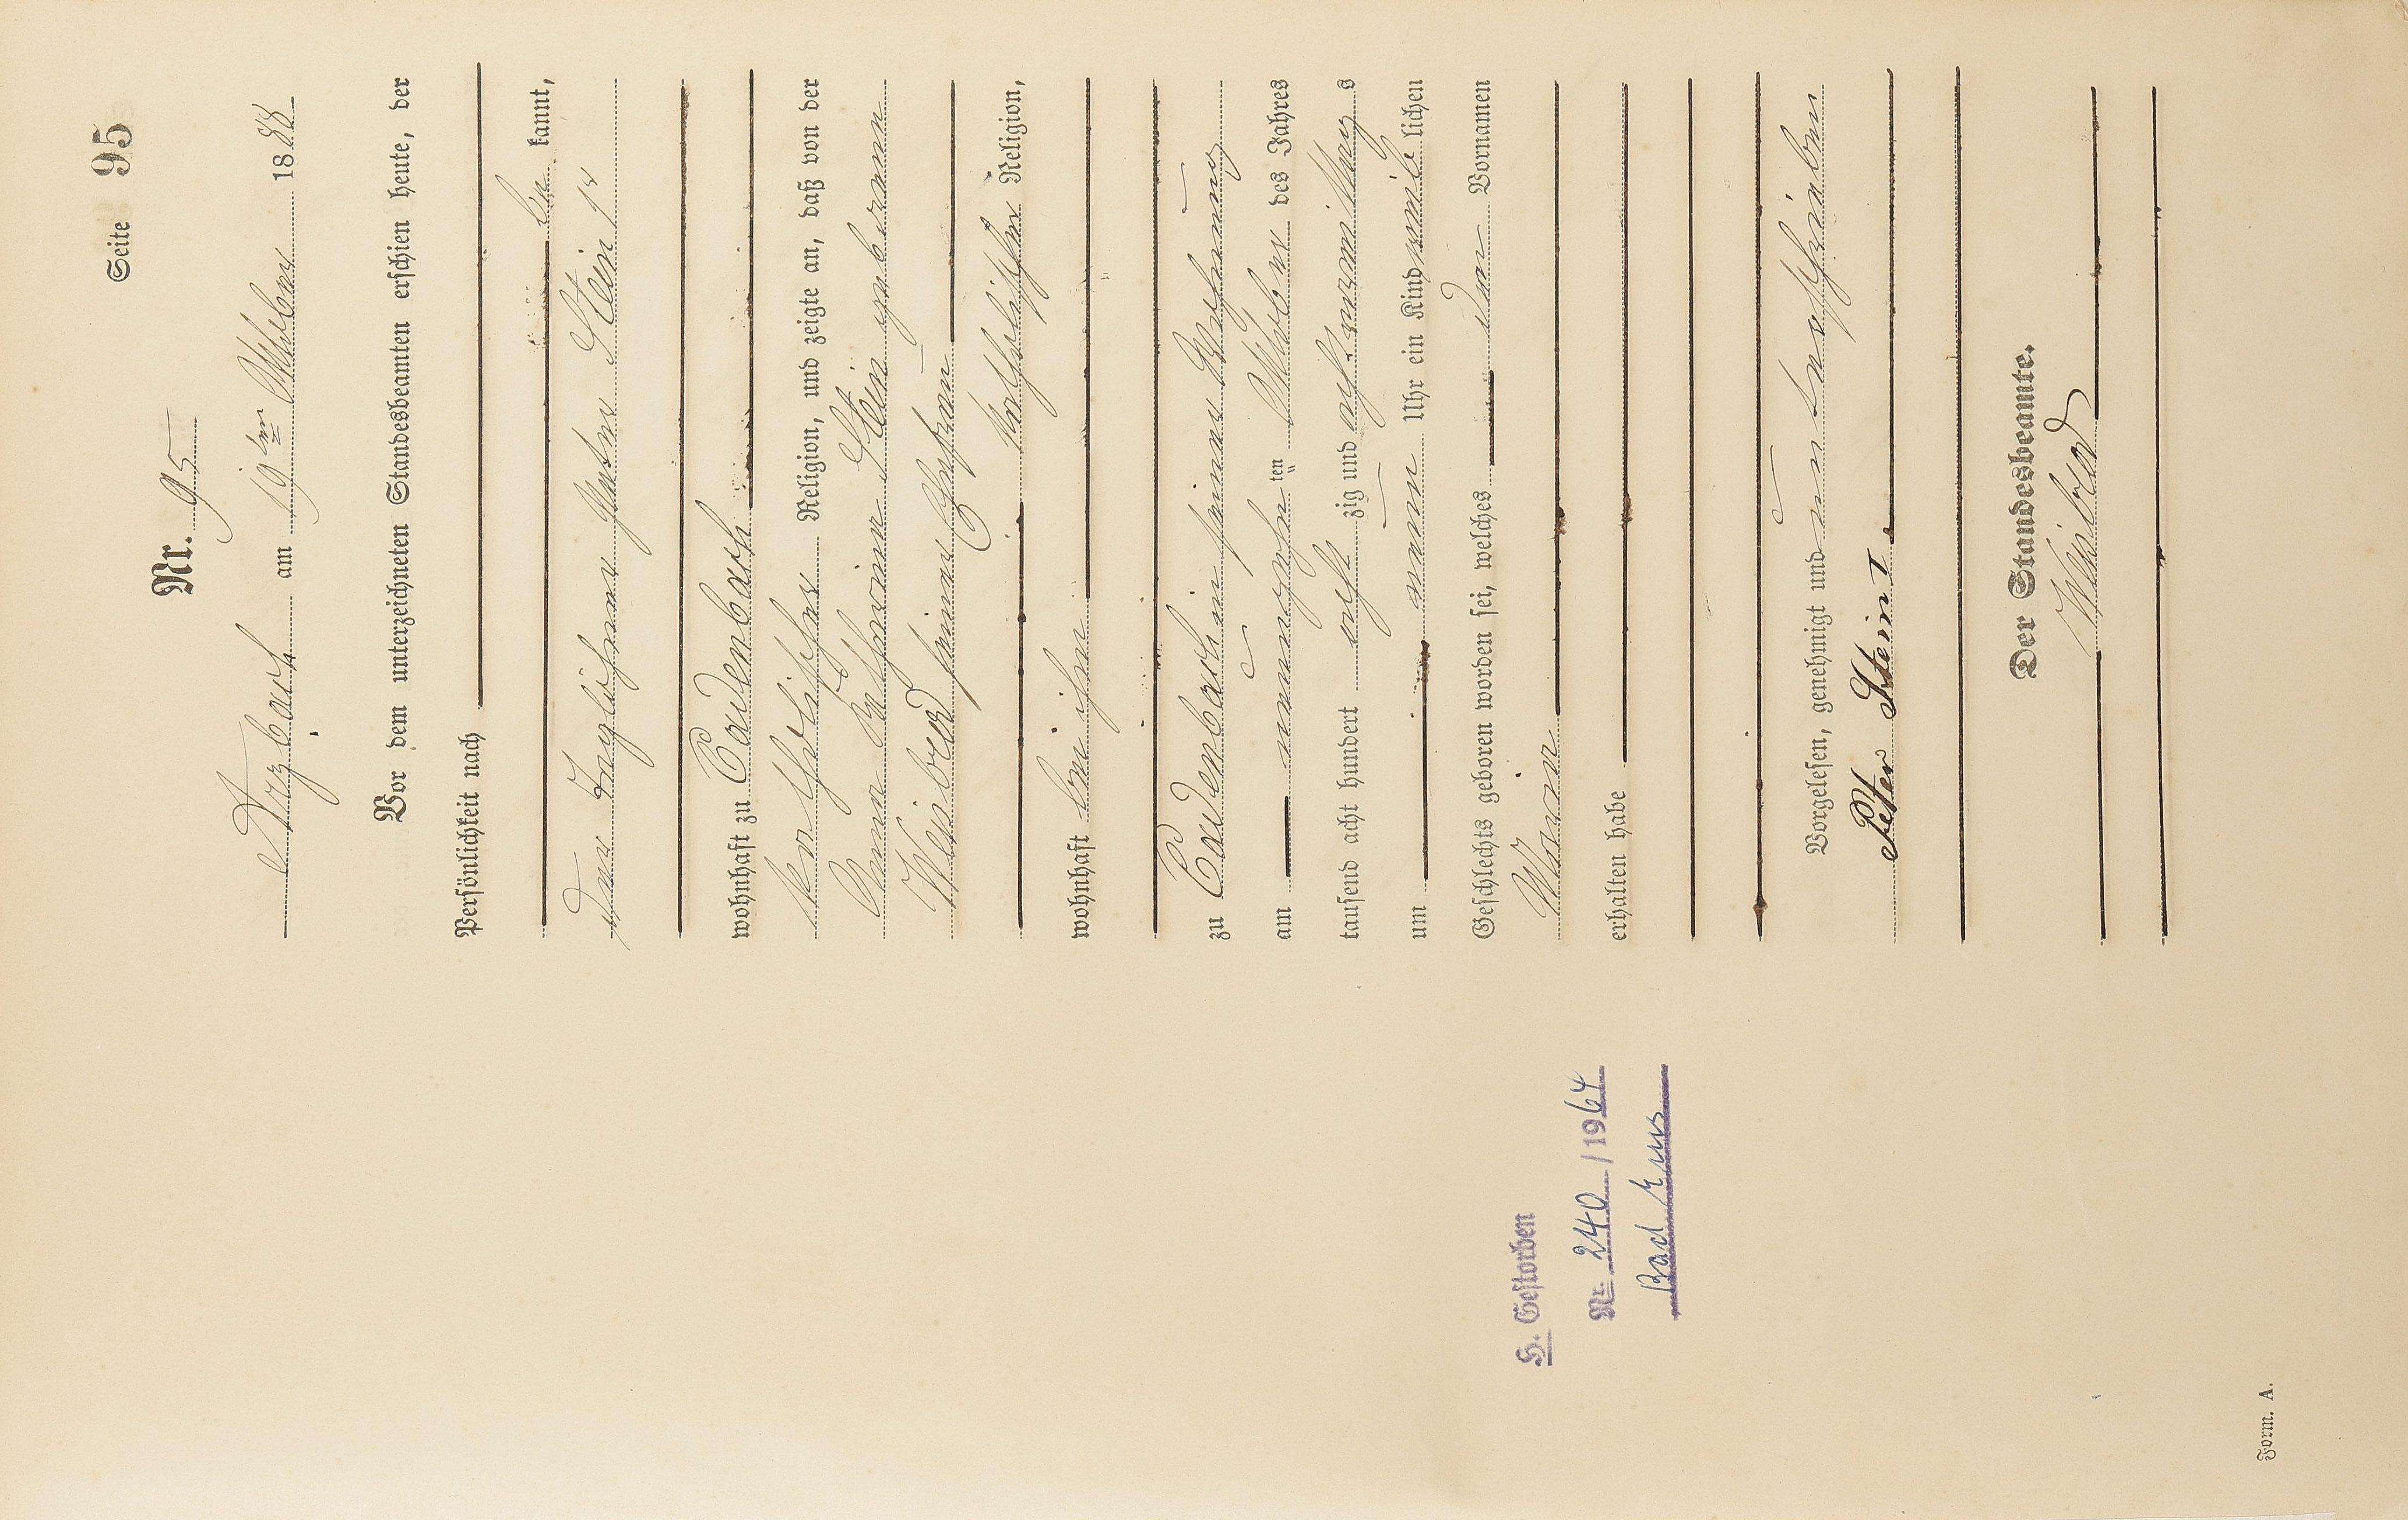 Seite 95
Nr. 95
Arzbach am 19ten Oktober 1888
Vor dem unterzeichneten Standesbeamten erschien heute, der
Persönlichkeit nach
be kannt,
der Taglöhner Peter Stein 1r
wohnhaft zu Cadenbach
katholischer Religion, und zeigte an, daß von der
Anna Katharina Stein geborenen
Weisbrod seiner Ehefrau
katholischer Religion,
wohnhaft bei ihm
zu Cadenbach in seiner Wohnung
am neunzehn ten Oktober des Jahres
tausend acht hundert acht zig und acht vormittag s
um neun Uhr ein Kind weib lichen
Geschlechts geboren worden sei, welches den Vornamen
Maria
erhalten habe
Vorgelesen, genehmigt und unterschrieben
Peter Stein I.
Der Standesbeamte.
Weisbrod
H. Gestorben
Nr. 240/1964
Bad Ems
Form. A.